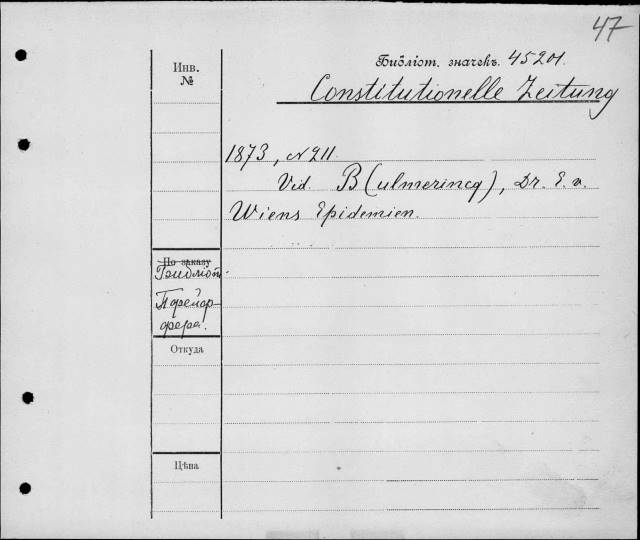 47
Библіот. значекъ. 45201.
Constitutionelle Zeitung
Инв.
№
1873, N 211.
Vid. B(ulmerincq), Dr. E. v.
Wiens Epidemien.
По заказу
Библіот.
Пфейф-
фера.
Откуда
Цѣна